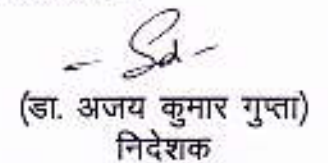 - Sd -
(डा. अजय कुमार गुप्ता)
निदेशक